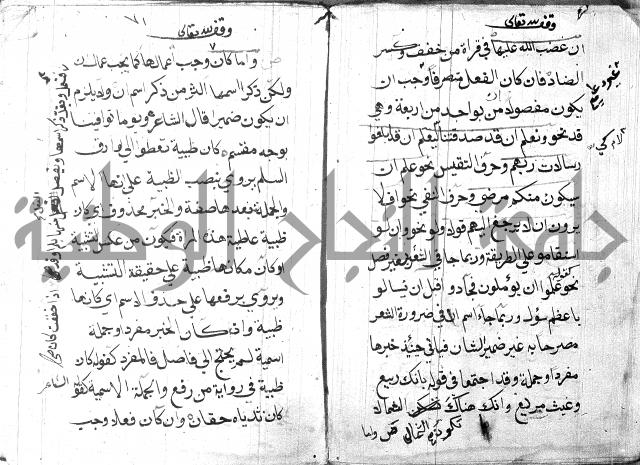 وقف لله تعالى
ان غضب الله عليها في قراة من خفف وكسر
الضاد فان كان الفعل متصرفا وجب ان
يكون مفصولا من بواحد من اربعة وهي
قد نحو ونعلم ان قد صدقتنا ليعلم ان قد ابلغو
رسالات ربهم وحرف التنفيس نحو علم ان
سيكون منكم مرضى وحرف النفي نحو افلا
يرون ان لا يرجع اليهم قولا ولو نحو وان لو
استقامو على الطريقة وربما جا في الشعر بغير فصل
كقوله
نحو علموا ان يؤملون فجادو قبل ان يسالو
باعظم سؤل وربما جاء اسم ان في ضرورة الشعر
مصرحا به غير ضمير الشان فياتي حينئذ خبرها
مفردا وجملة وقد اجتمعا في قوله بانك ربيع
وغيث مريع وانك هناك تكون الثمالا
واما
وقف لله تعالى
٧١
واما كان وجب اعمالها كما يجب عمال ان
ولكن ذكر اسمها اكثر من ذكر اسم ان ولا يلزم
ان يكون ضميرا قال الشاعر ويوما توافينا
بوجه مقسم كان ظبية تعطوا الى وارق
السلم يروى بنصب الظبية على انها الاسم
والجملة بعدها صفة والخبر محذوف اي كان
ظبية عاطية هذه المراة فيكون من عكس التشبيه
او كان مكانها ظبية على حقيقة التشبيه
ويروى برفعها على حذف الاسم اي كانها
ظبية واذا كان الخبر مفردا وجملة
اسمية لم يحتج الى فاصل فالمفرد كقوله كان
ظبية في رواية من رفع والجملة الاسمية كقو
كان ثدياه حقان وان كان فعلا وجب
الشاعر
جامعة النجاح الوطنية